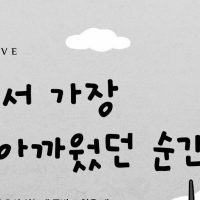 VE
서 가장
아까웠던 순간